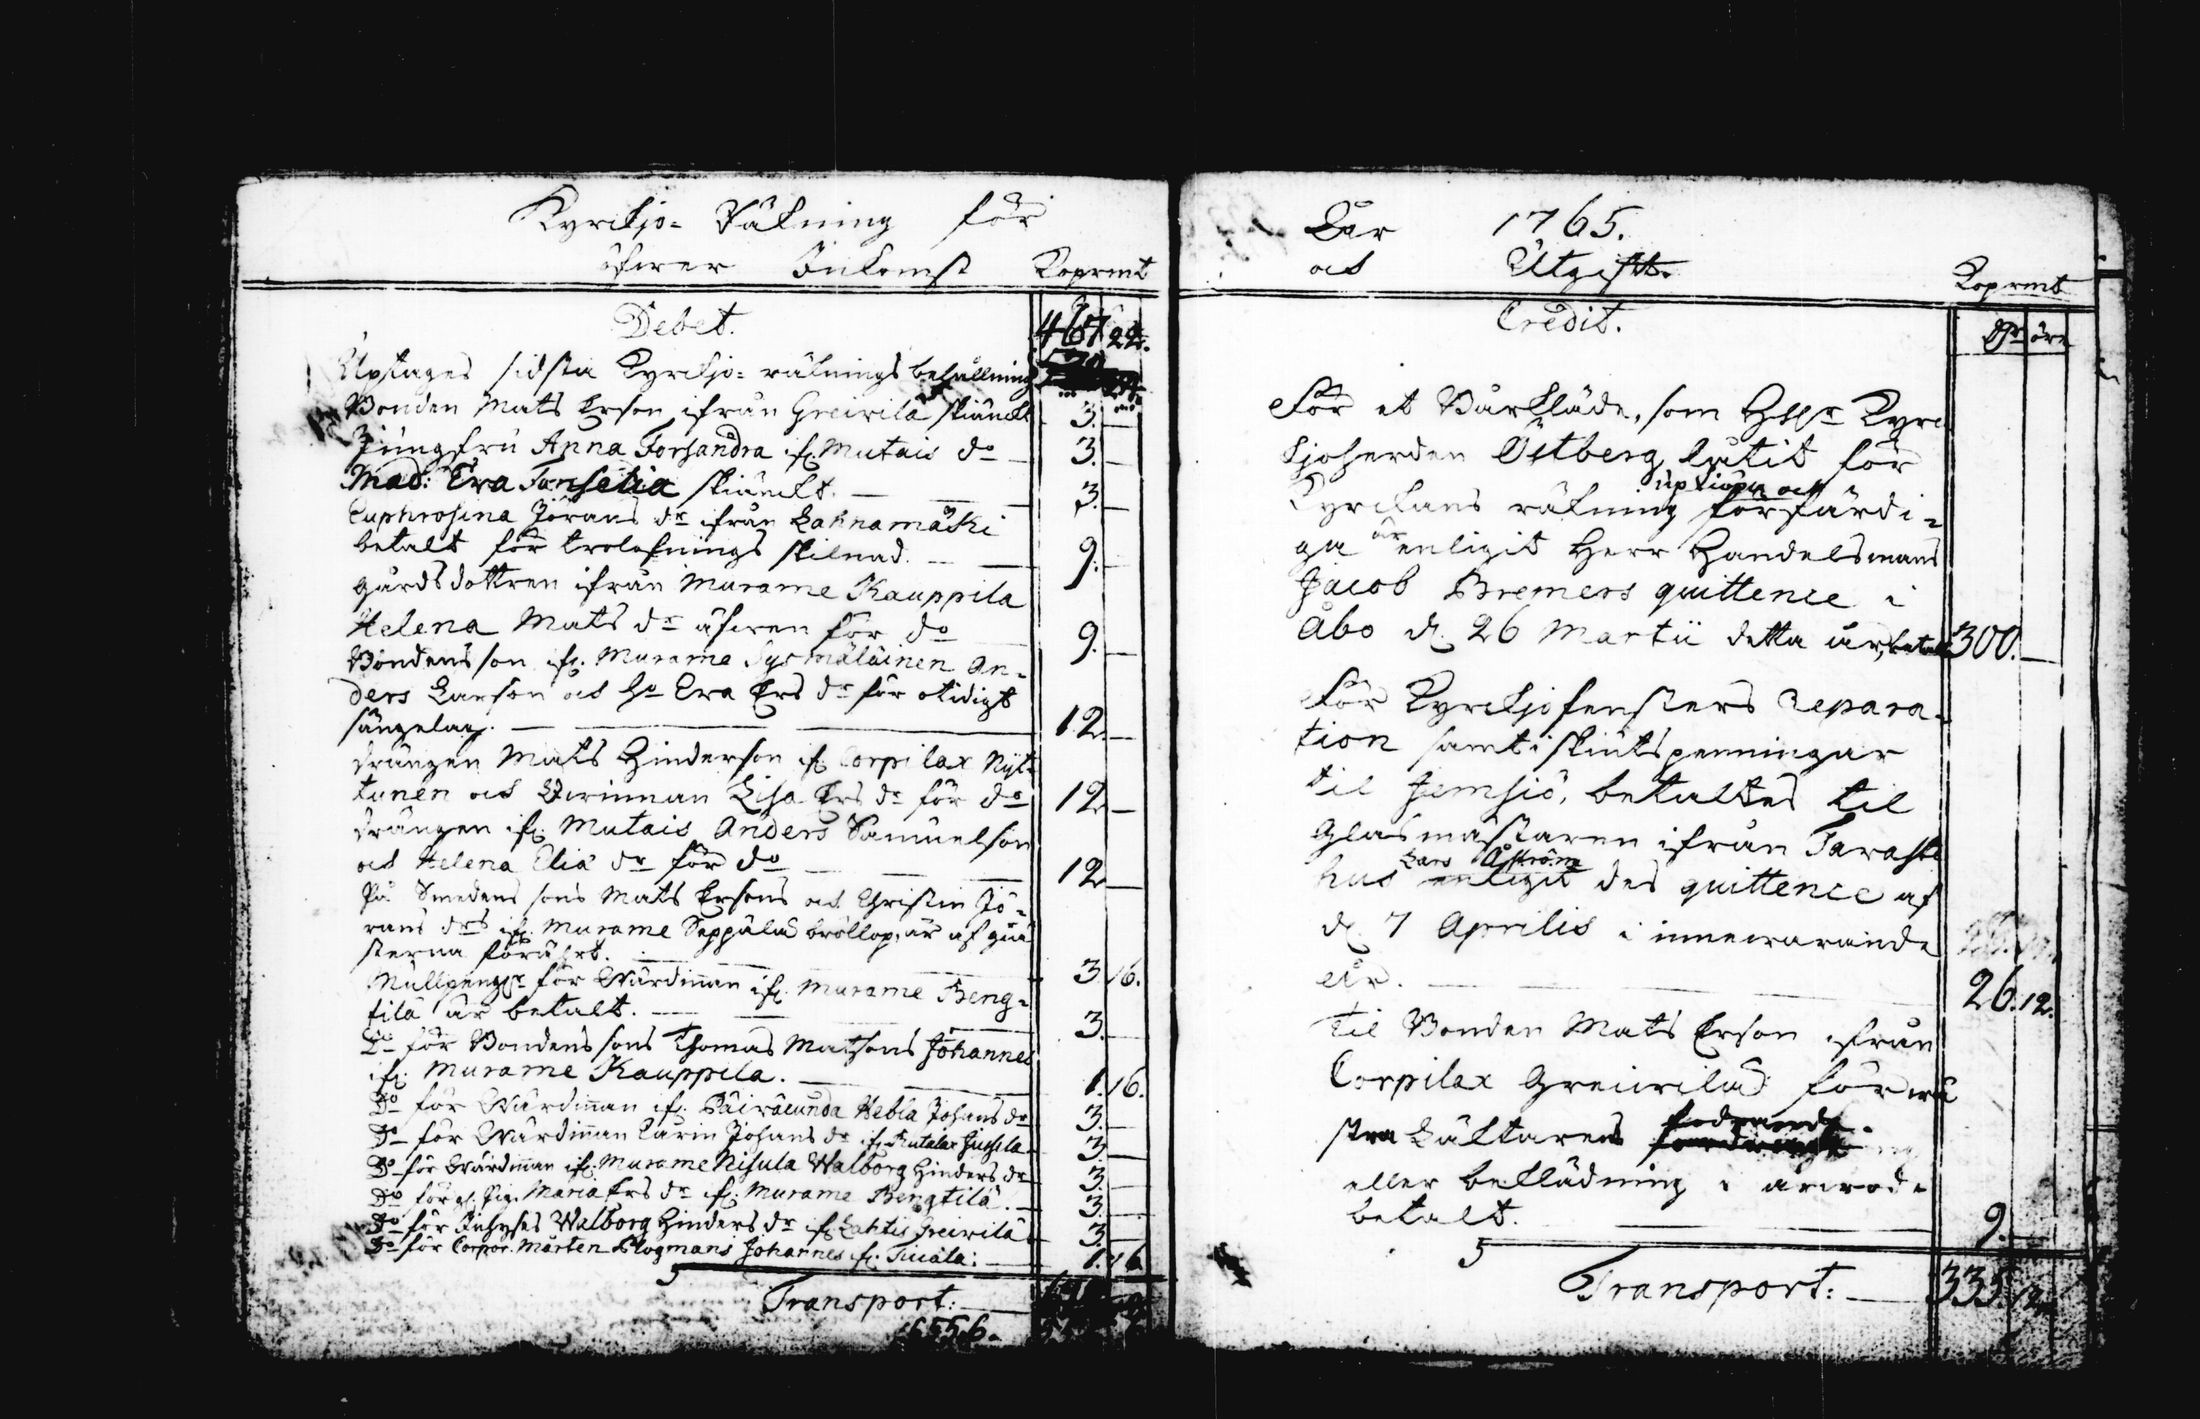 Kyrckjo- Räkning för
öfwer Inkomst Koprmt
Debet.
467 22.
Uptages sidsta Kyrckjo- räknings behållning
Bonden Mats Erson ifrån Greivilä skiänckt 3. —
Jungfru Anna Forsandra if. Mutais do — 3. —
Mad: Eva skiänckt. — 3. —
Euphrosina Jörans dr ifrån Lahnamäki
betalt för trolofnings skilnad. — 9. —
gårdsdottren ifrån Murame Kauppila
Helena Mats dr äfwen för do 9. —
Bondens son if. Murame Sysmäläinen An-
ders Larson och ho Eva Ers dr för otidigt
sängelag. — 12. —
drängen Mats Hinderson if. Corpilax Nyt-
tunen och Qwinnan Lisa Ers dr för do 12 —
drängen if. Mutais Anders Samuelson
och Helena Elia dr för do 12 —
På Smedens sons Mats Ersons och Christin Jö-
rans drs if. Murame Seppälas bröllop, är af giä
sterna förährt. — 3. 16.
Mullpengr för Wärdinnan if. Murame Beng-
tilä är betalt. — 3. —
Do för Bondens sons Thomas Matsons Johannes
if. Murame Kauppila. — 1. 16.
Do för Wärdinnan if. Päiväcunda Hebla Johans dr 3. —
Do för Wärdinnan Carin Johans dr if. Rutalax 3. —
Do för Wärdinnan if. Murame Nisula Walborg Hinders dr 3. —
Do för Pig. Maria Ers dr if. Murame Bengtilä. — 3. —
Do för Inhyses Walborg Hinders dr if. Lahtis Greivilä 3. —
Do för Corpor. Mårten Plogmans Johannes if. 1. 16
Transport: —
655.6.
Åhr 1765.
och Utgift.
Koprmt
Credit.
Dr öre
För et Bårkläde, som H Hr Kyrc
kjoherden Östberg lutit för
Kyrckans räkning upkiöpa och förfärdi-
ga är enligit Herr Handelsmans
Jacob Bremers quittence i
Åbo d. 26 Martii detta år, betalt 300. —
För Kyrckjofensters repara-
tion samt skiutspenningar
til Jemsiö, betaltes til
Glasmästaren ifrån Tavaste
hus Lars Åström enligit des quittence af
d. 7 Aprilis i innewarande
år. — 26. 12.
Til Bonden Mats Erson ifrån
Corpilax Greivilä för wä
stra Läktarens fodrande
eller beklädning i arwode
betalt. — 9. —
Transport: — 335. 12